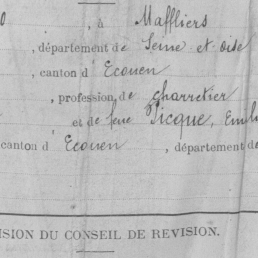 0 , à Maffliers
, département de Seine et oise
, canton d'Ecouen
, profession de charretier
et de feue Picque, Emil
canton d'Ecouen , département de
ISION DU CONSEIL DE REVISION.